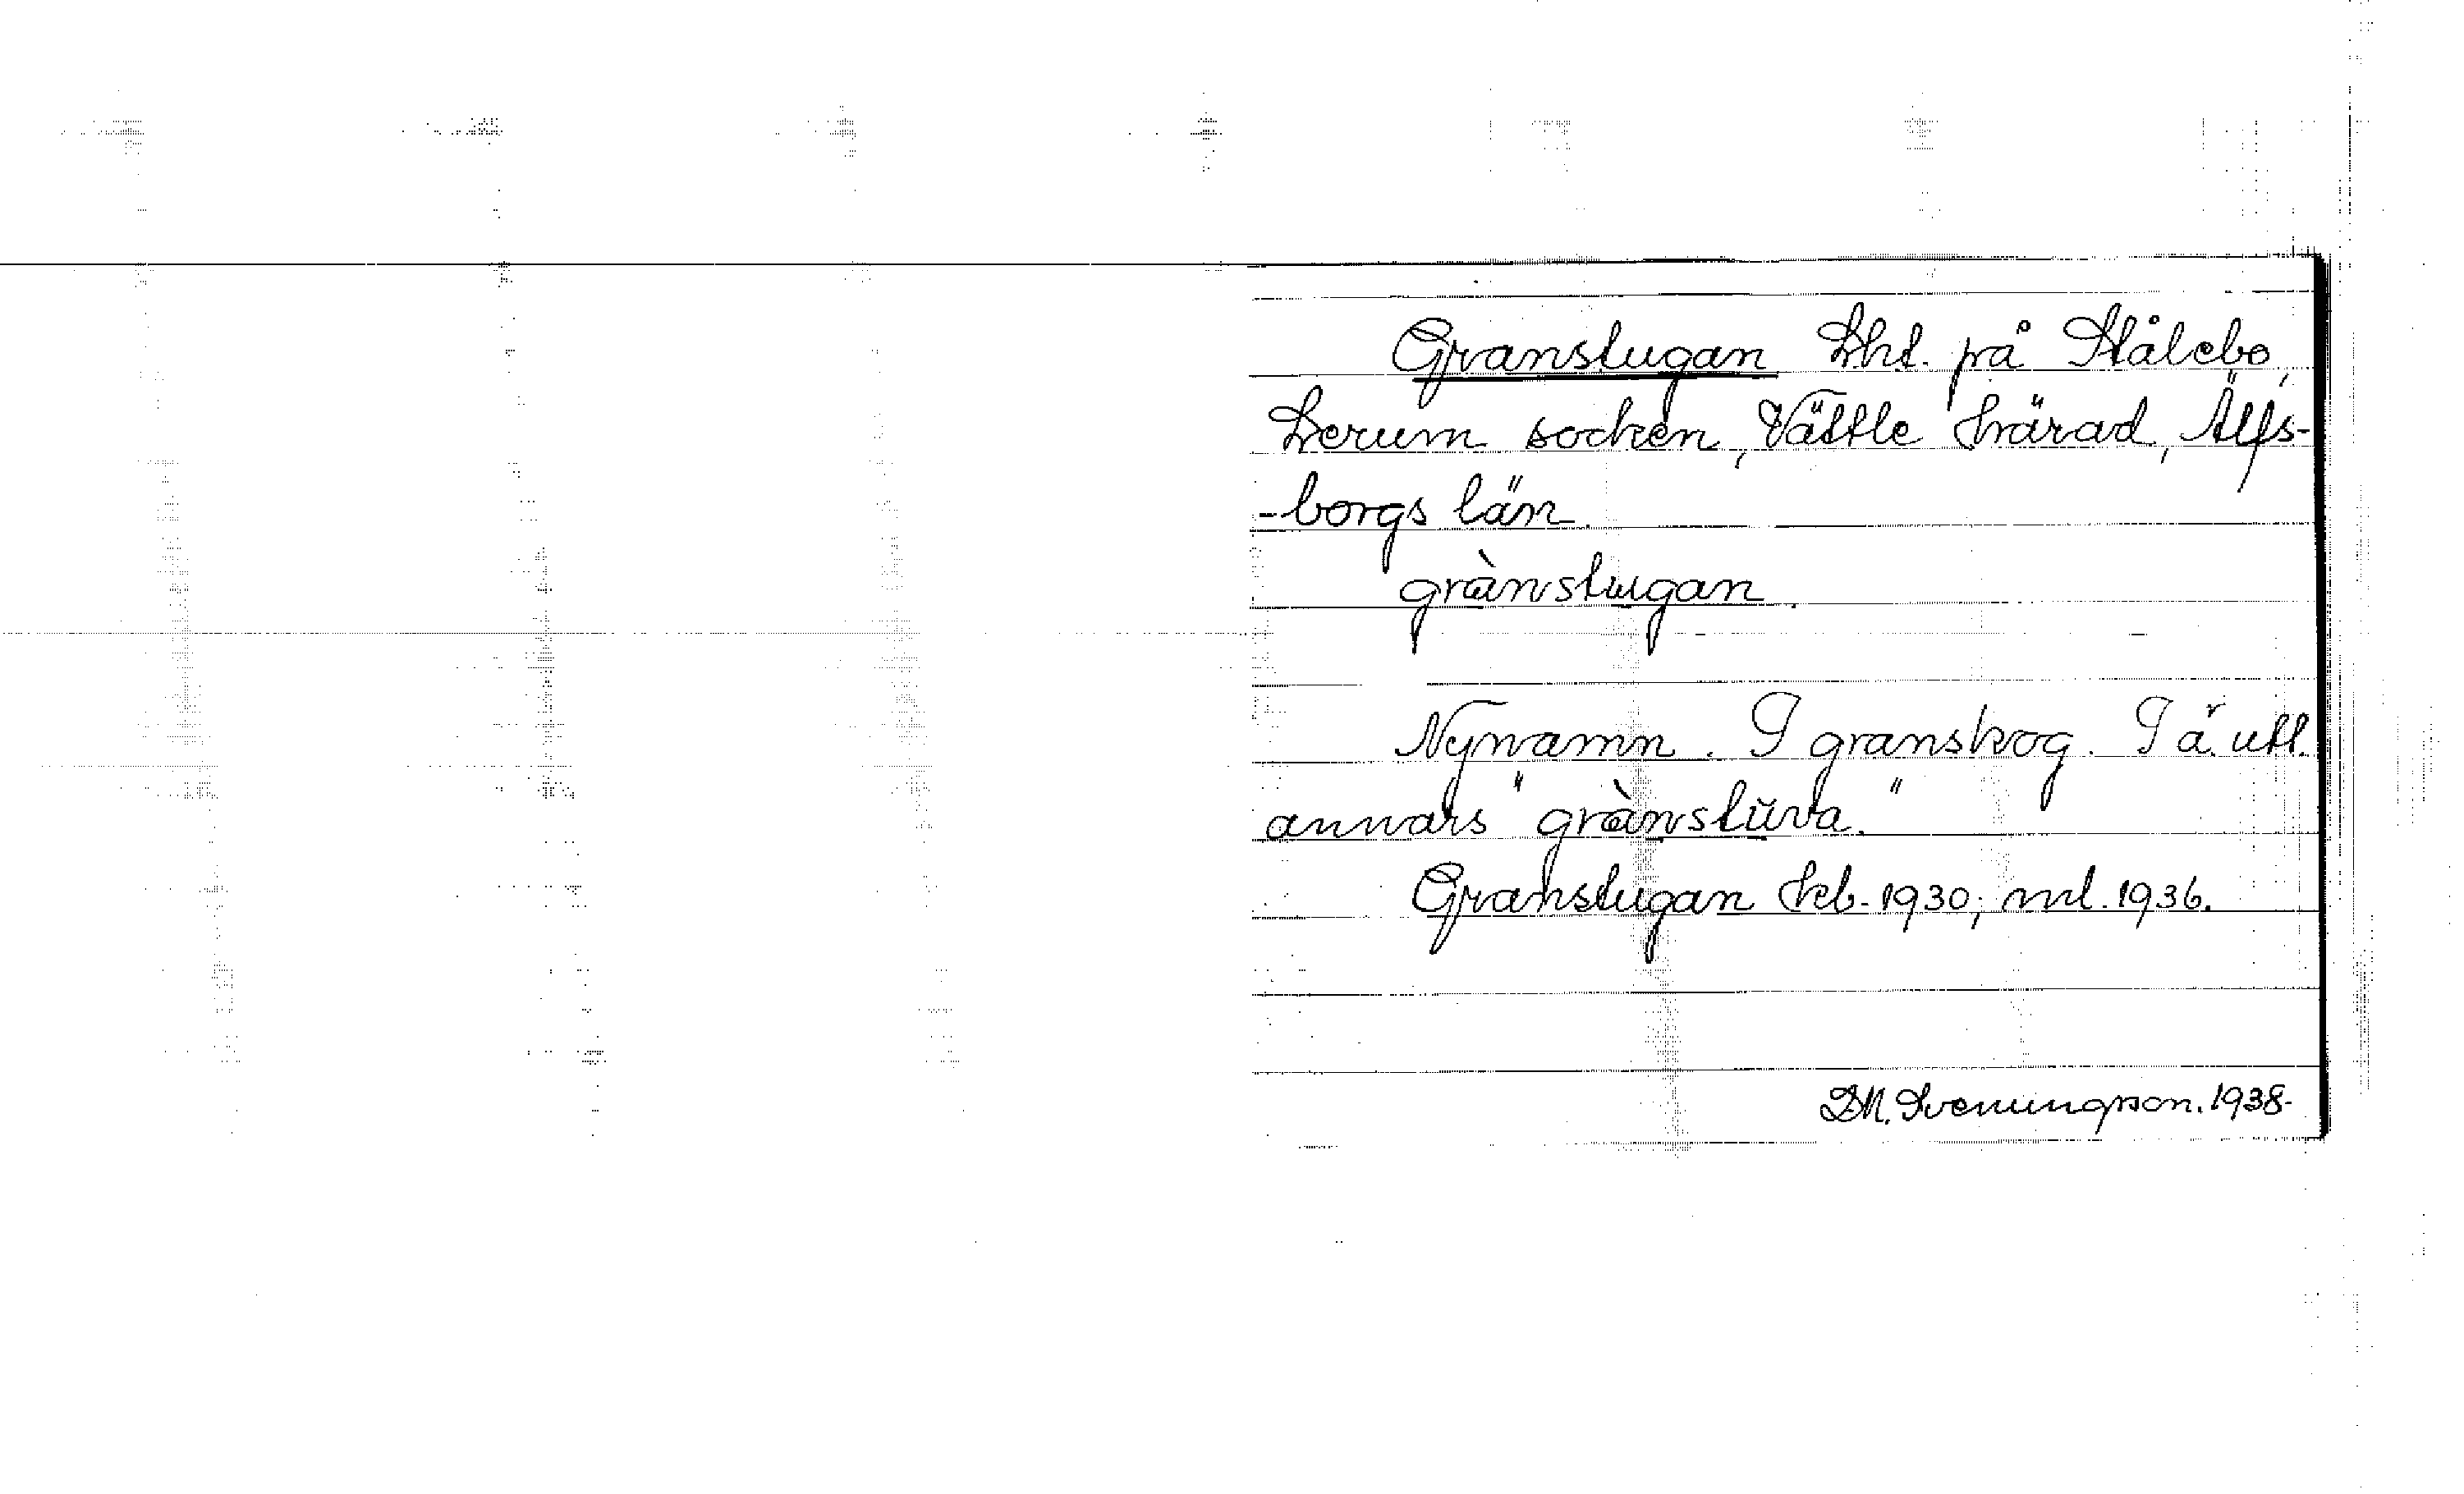 Granstugan Lht. på Stålebo,
Lerum socken, Vättle härad, Älfs-
-borgs län.
grànstugan.
Nynamn. I granskog. I ä. utt.
annars "grànstŭva."
Granstugan hfb. 1930; ml. 1936.
D.M. Svenungsson. 1938.